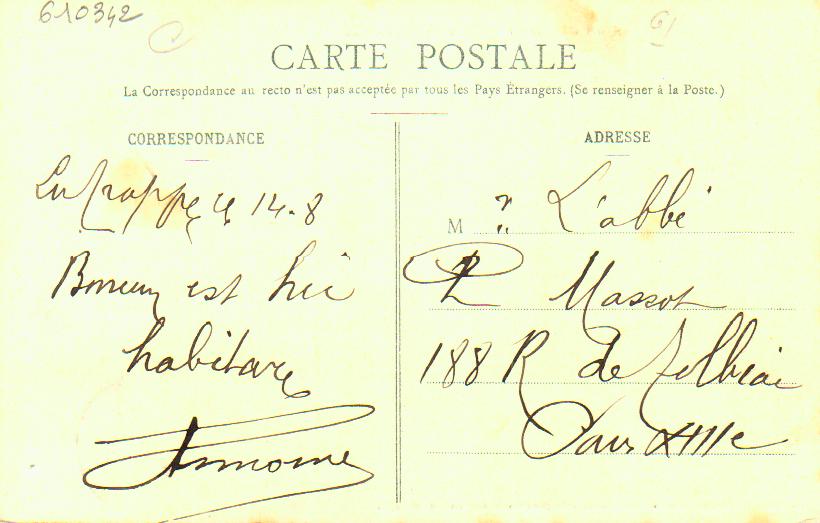 610342
CARTE POSTALE
La Correspondance au recto n'est pas acceptée par tous les Pays Étrangers. (Se renseigner à la Poste.)
CORRESPONDANCE
La Trappe le 14-8
Bonum est hic
habitare
Antoine
ADRESSE
M r L'abbé
Massot
188 R de Tolbiac
Paris XIIIe